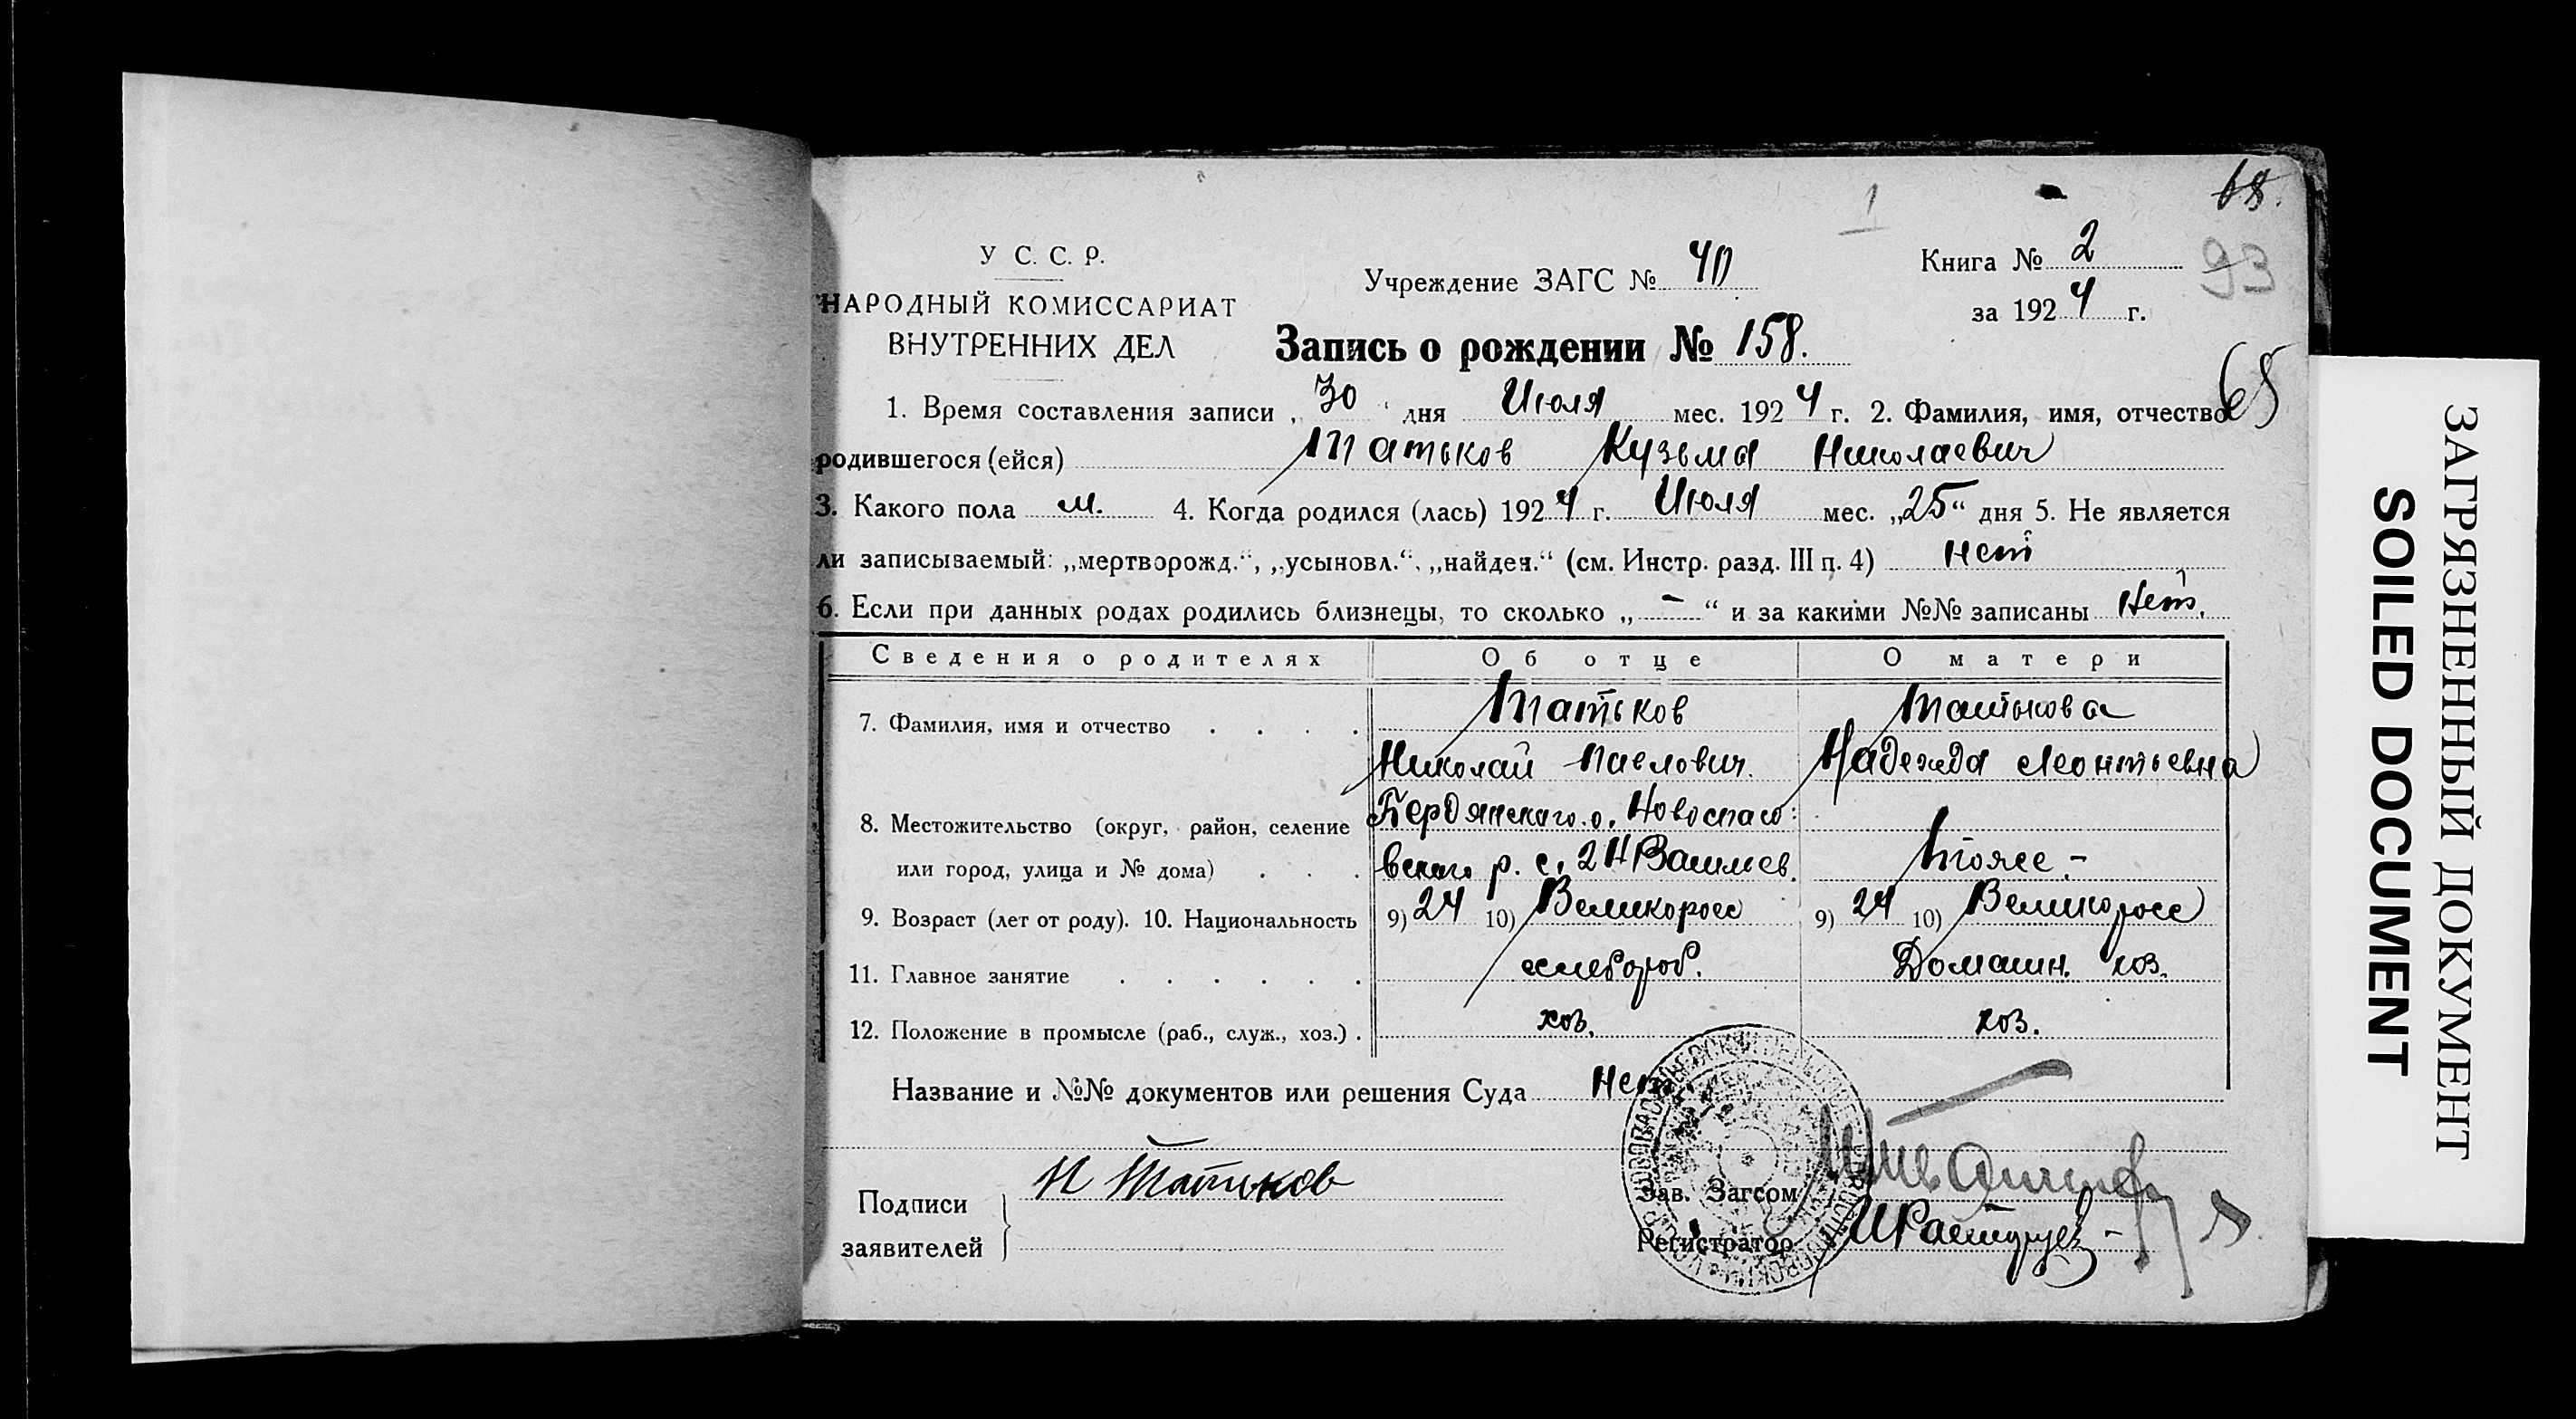 68.
1
У С. С. Р.
Учреждение ЗАГС № 40
Книга № 2
93
НАРОДНЫЙ КОМИССАРИАТ
за 1924 г.
ВНУТРЕННИХ ДЕЛ
Запись о рождении № 158.
65
1. Время составления записи „30“ дня Июля мес. 1924 г. 2. Фамилия, имя, отчество
родившегося (ейся) Татьков Кузьма Николаевич
3. Какого пола м. 4. Когда родился (лась) 1924 г. Июля мес. „25“ дня 5. Не является
ли записываемый: „мертворожд.“, „усыновл.“, „найден.“ (см. Инстр. разд. III п. 4) нет
6. Если при данных родах родились близнецы, то сколько „-“ и за какими №№ записаны Нет.
Сведения о родителях Об отце О матери
7. Фамилия, имя и отчество . . . . Татьков Татькова
Николай Павлович. Надежда Леонтьевна
8. Местожительство (округ, район, селение Бердянскаго о. Новоспасо-
или город, улица и № дома) . . . вскаго р. с. 2 Н Васильев. Тоже -
9. Возраст (лет от роду). 10. Национальность 9) 24 10) Великоросс 9) 24 10) Великоросс
11. Главное занятие . . . . . . хлебороб. Домашн. хоз.
12. Положение в промысле (раб., служ., хоз.) . хоз. хоз.
Название и №№ документов или решения Суда Нет
Подписи заявителей Н Татьков
Зав. Загсом
Регистратор
ЗАГРЯЗНЕННЫЙ ДОКУМЕНТ
SOILED DOCUMENT